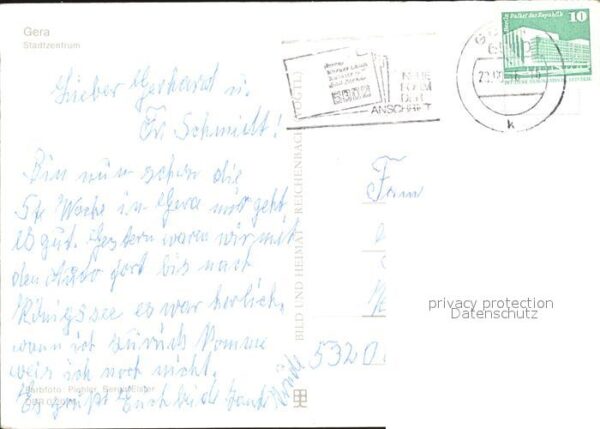 Gera
Stadtzentrum
Lieber Gerhard u.
Fr Schmidt!
Bin nun schon die
5te Woche in Gera mir geht
es gut. Gestern waren wir mit
den Auto fort bis nach
Königssee es war herlich.
wann ich zurück komme
weis ich noch nicht.
Es grüßt Euch beide Tante
Farbfoto: Pichler, Gera/Elster
BILD UND HEIMAT REICHENBACH (VOGTL)
NEUE
FORM
DER
ANSCHRIFT
Palast der Republik
10
k
Fam
5320
privacy protection
Datenschutz